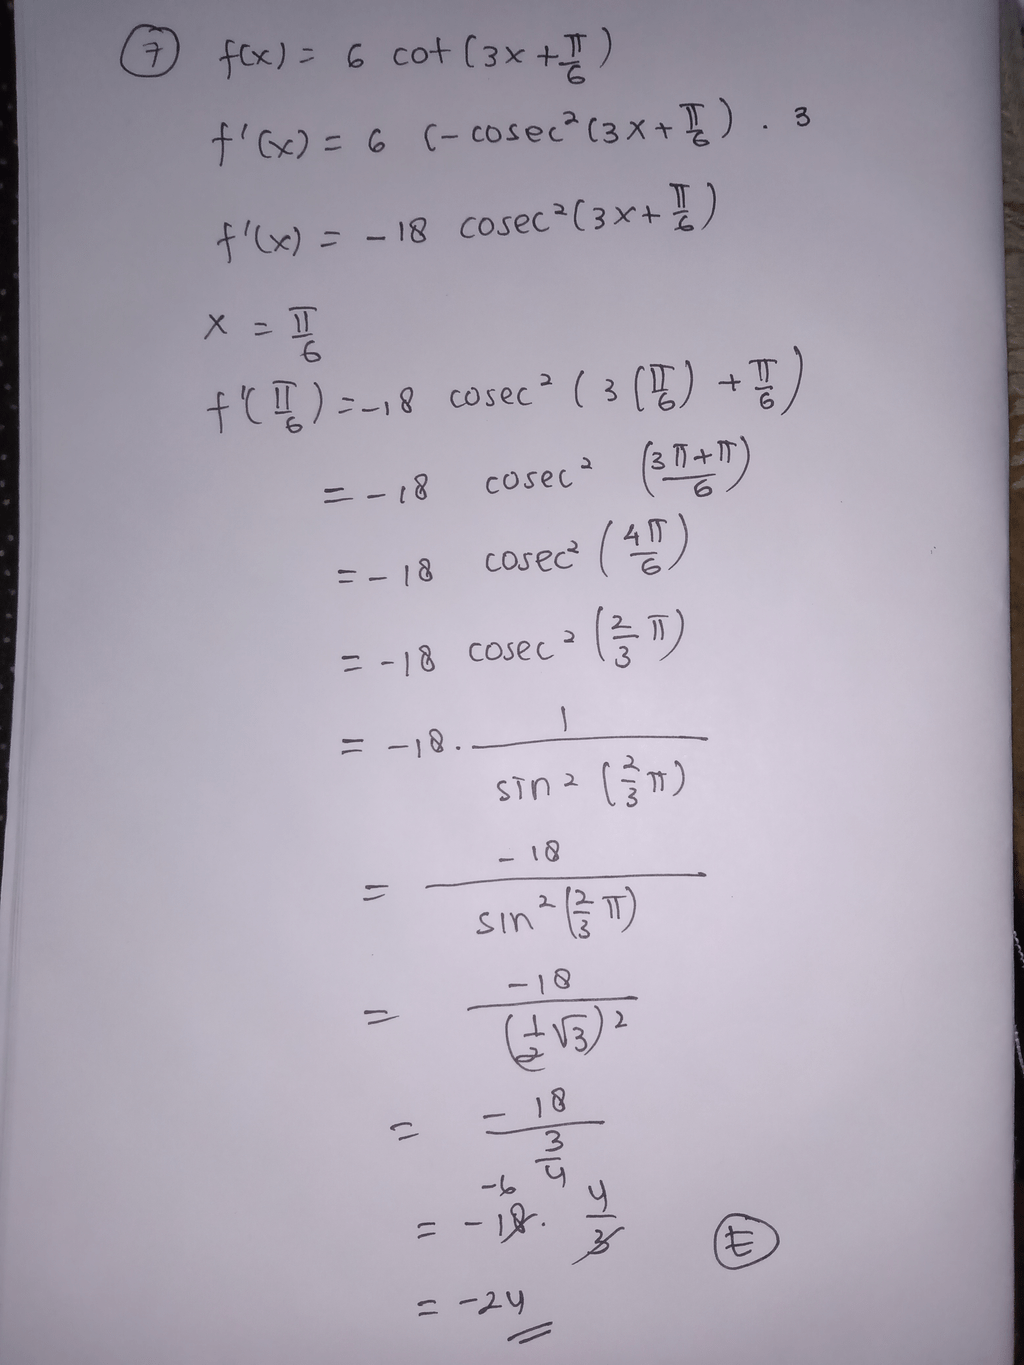 7 f(x) = 6 cot (3x + π/6)
f'(x) = 6 (- cosec²(3x + π/6) . 3
f'(x) = -18 cosec²(3x + π/6)
x = π/6
f'(π/6) = -18 cosec² (3 (π/6) + π/6)
= -18 cosec² (3π+π/6)
= -18 cosec² (4π/6)
= -18 cosec² (2/3 π)
= -18 . 1/sin² (2/3 π)
= -18/sin² (2/3 π)
= -18/(1/2 √3)²
= -18/(3/4)
-6
= -18 . 4/3
E
= -24